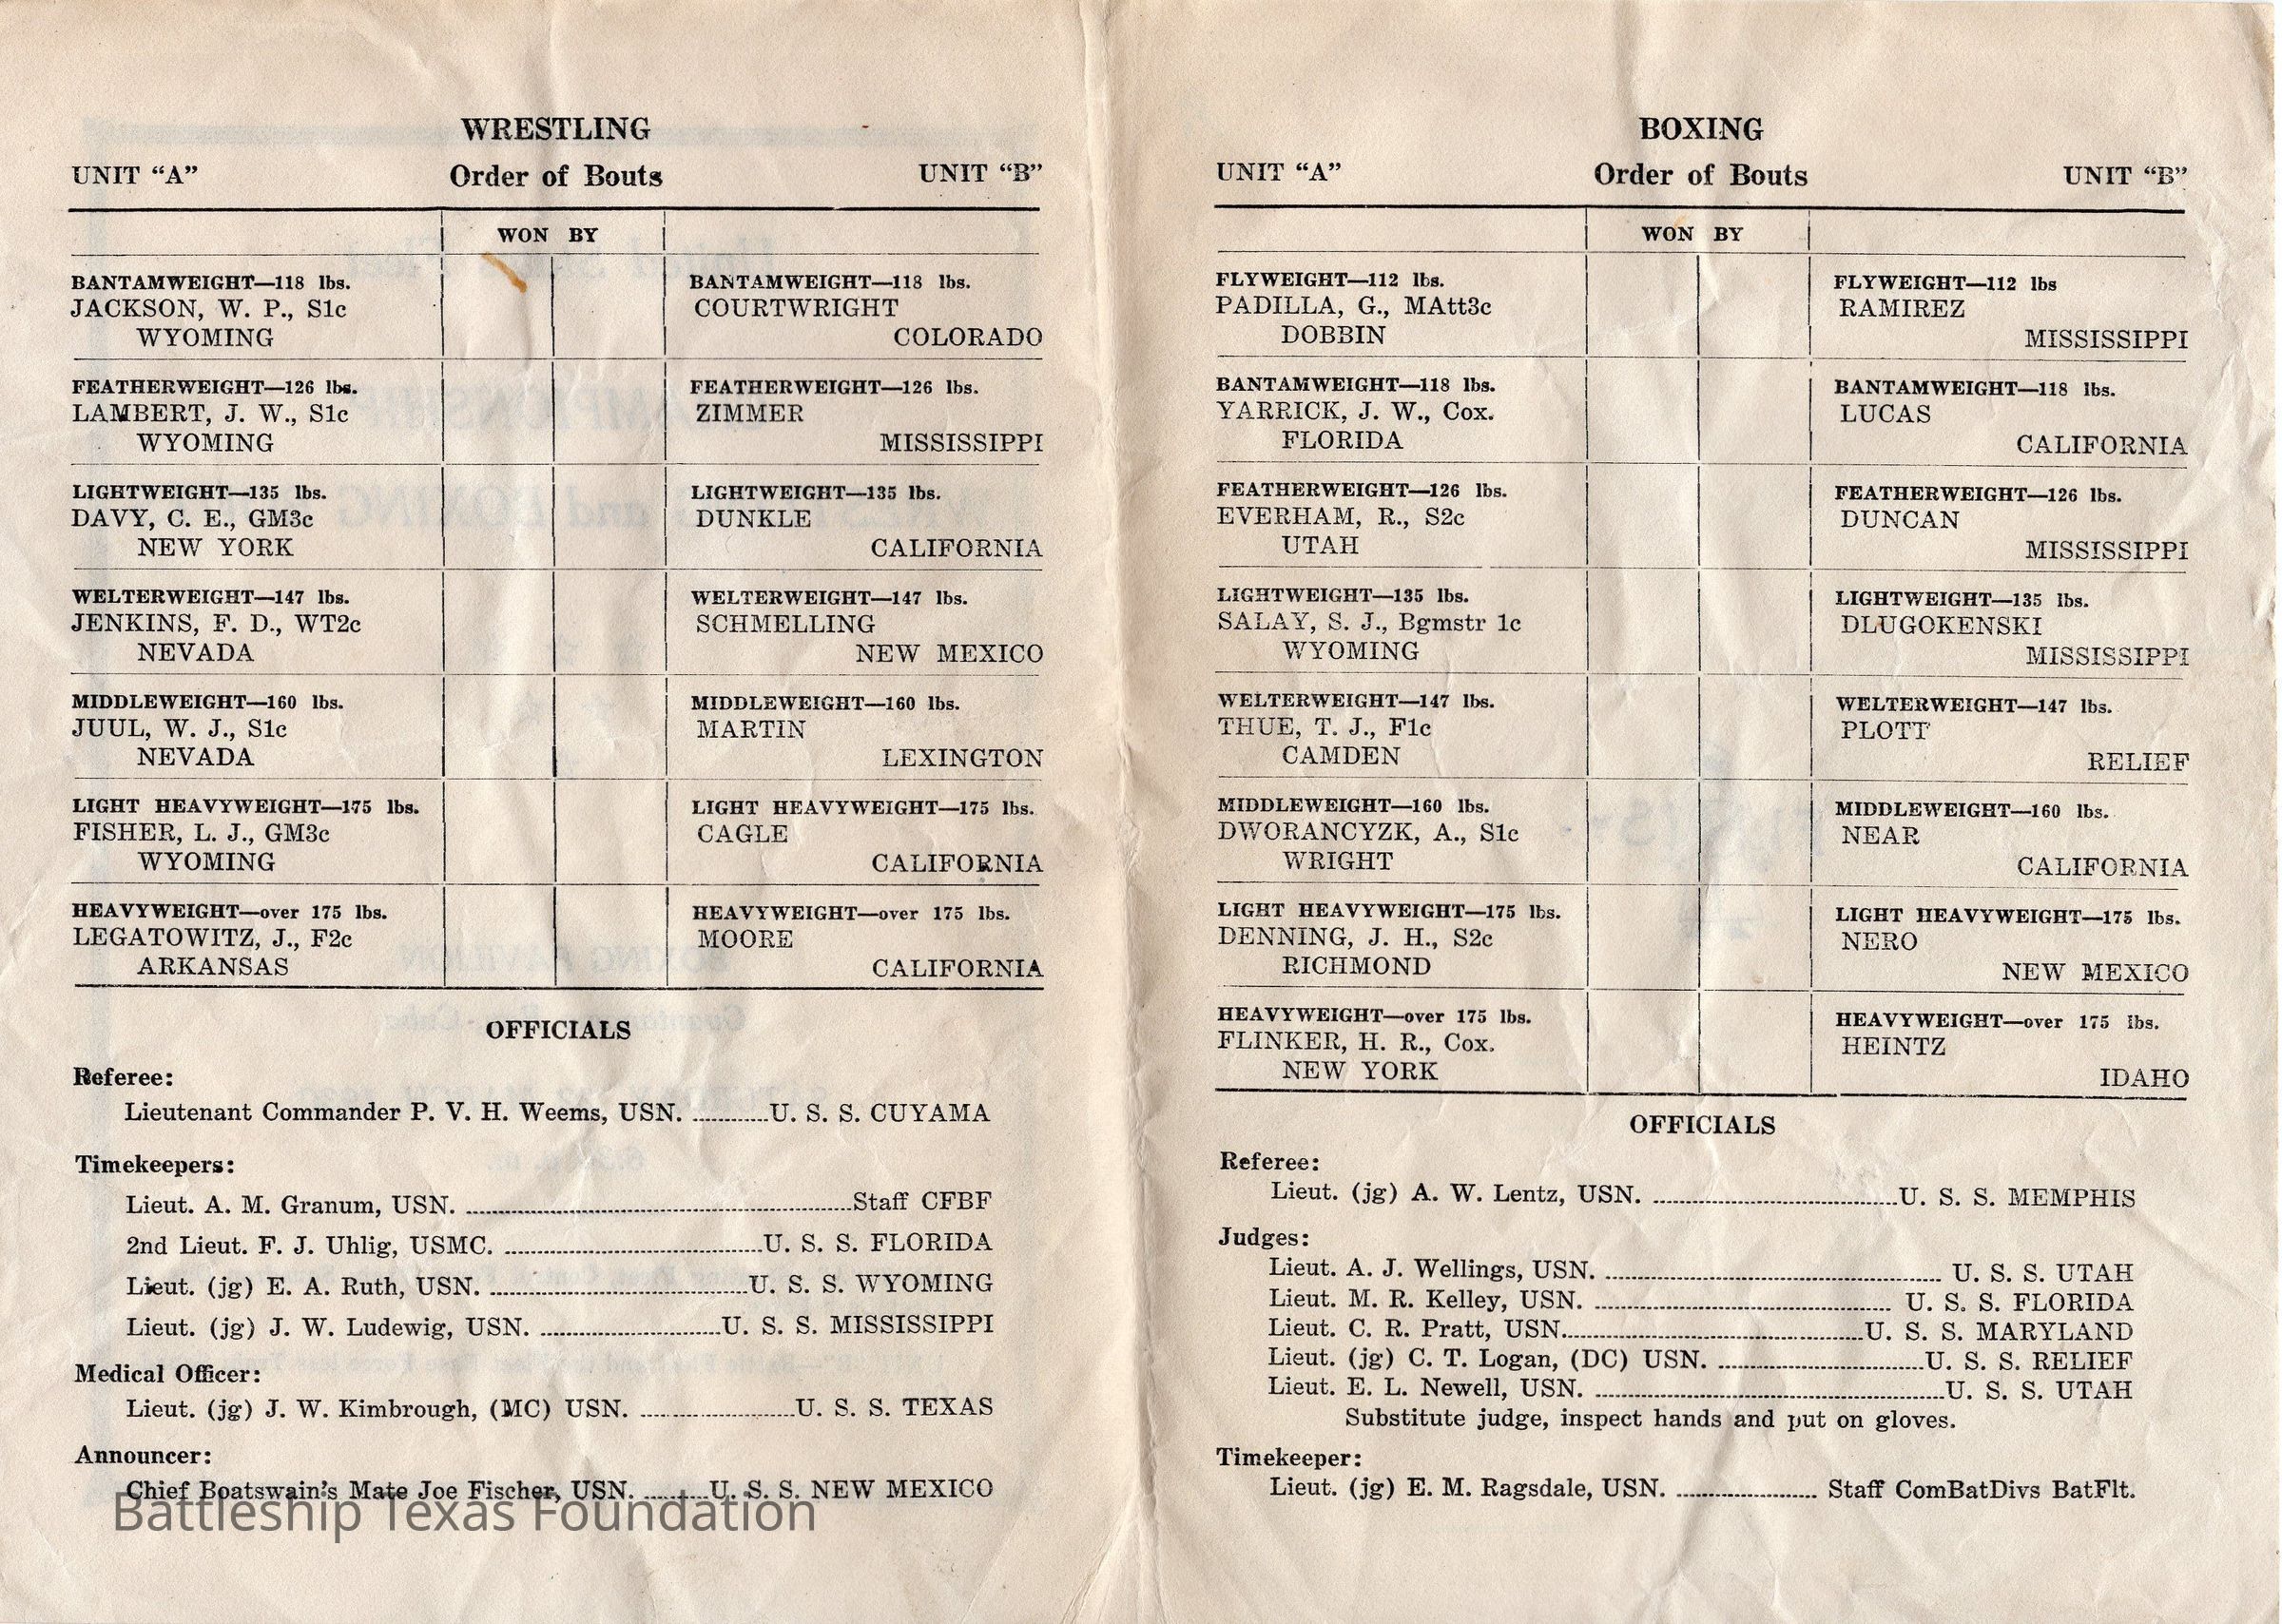 WRESTLING
UNIT “A” Order of Bouts UNIT “B”
WON BY
BANTAMWEIGHT—118 lbs. BANTAMWEIGHT—118 lbs.
JACKSON, W. P., S1c COURTWRIGHT
WYOMING COLORADO
FEATHERWEIGHT—126 lbs. FEATHERWEIGHT—126 lbs.
LAMBERT, J. W., S1c ZIMMER
WYOMING MISSISSIPPI
LIGHTWEIGHT—135 lbs. LIGHTWEIGHT—135 lbs.
DAVY, C. E., GM3c DUNKLE
NEW YORK CALIFORNIA
WELTERWEIGHT—147 lbs. WELTERWEIGHT—147 lbs.
JENKINS, F. D., WT2c SCHMELLING
NEVADA NEW MEXICO
MIDDLEWEIGHT—160 lbs. MIDDLEWEIGHT—160 lbs.
JUUL, W. J., S1c MARTIN
NEVADA LEXINGTON
LIGHT HEAVYWEIGHT—175 lbs. LIGHT HEAVYWEIGHT—175 lbs.
FISHER, L. J., GM3c CAGLE
WYOMING CALIFORNIA
HEAVYWEIGHT—over 175 lbs. HEAVYWEIGHT—over 175 lbs.
LEGATOWITZ, J., F2c MOORE
ARKANSAS CALIFORNIA
OFFICIALS
Referee:
Lieutenant Commander P. V. H. Weems, USN. ...........U. S. S. CUYAMA
Timekeepers:
Lieut. A. M. Granum, USN. ..........Staff CFBF
2nd Lieut. F. J. Uhlig, USMC. ..........U. S. S. FLORIDA
Lieut. (jg) E. A. Ruth, USN. ..........U. S. S. WYOMING
Lieut. (jg) J. W. Ludewig, USN. ..........U. S. S. MISSISSIPPI
Medical Officer:
Lieut. (jg) J. W. Kimbrough, (MC) USN. ..........U. S. S. TEXAS
Announcer:
Chief Boatswain's Mate Joe Fischer, USN. ..........U. S. S. NEW MEXICO
Battleship Texas Foundation
BOXING
UNIT “A” Order of Bouts UNIT “B”
WON BY
FLYWEIGHT—112 lbs. FLYWEIGHT—112 lbs
PADILLA, G., MAtt3c RAMIREZ
DOBBIN MISSISSIPPI
BANTAMWEIGHT—118 lbs. BANTAMWEIGHT—118 lbs.
YARRICK, J. W., Cox. LUCAS
FLORIDA CALIFORNIA
FEATHERWEIGHT—126 lbs. FEATHERWEIGHT—126 lbs.
EVERHAM, R., S2c DUNCAN
UTAH MISSISSIPPI
LIGHTWEIGHT—135 lbs. LIGHTWEIGHT—135 lbs.
SALAY, S. J., Bgmstr 1c DLUGOKENSKI
WYOMING MISSISSIPPI
WELTERWEIGHT—147 lbs. WELTERWEIGHT—147 lbs.
THUE, T. J., F1c PLOTT
CAMDEN RELIEF
MIDDLEWEIGHT—160 lbs. MIDDLEWEIGHT—160 lbs.
DWORANCYZK, A., S1c NEAR
WRIGHT CALIFORNIA
LIGHT HEAVYWEIGHT—175 lbs. LIGHT HEAVYWEIGHT—175 lbs.
DENNING, J. H., S2c NERO
RICHMOND NEW MEXICO
HEAVYWEIGHT—over 175 lbs. HEAVYWEIGHT—over 175 lbs.
FLINKER, H. R., Cox. HEINTZ
NEW YORK IDAHO
OFFICIALS
Referee:
Lieut. (jg) A. W. Lentz, USN. ..........U. S. S. MEMPHIS
Judges:
Lieut. A. J. Wellings, USN. .......... U. S. S. UTAH
Lieut. M. R. Kelley, USN. .......... U. S. S. FLORIDA
Lieut. C. R. Pratt, USN...........U. S. S. MARYLAND
Lieut. (jg) C. T. Logan, (DC) USN. ..........U. S. S. RELIEF
Lieut. E. L. Newell, USN. ..........U. S. S. UTAH
Substitute judge, inspect hands and put on gloves.
Timekeeper:
Lieut. (jg) E. M. Ragsdale, USN. .......... Staff ComBatDivs BatFlt.